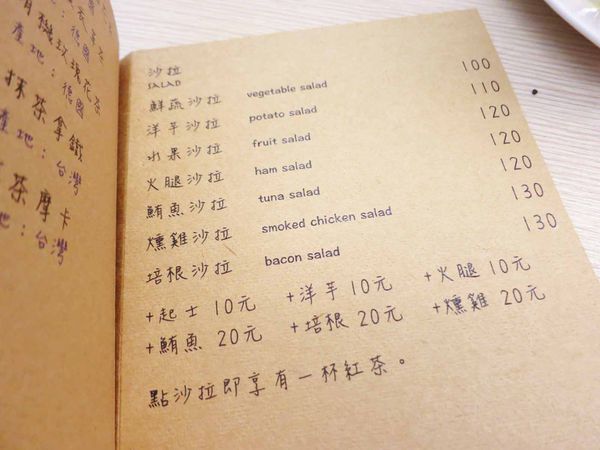 產地：德國
有機玫瑰花茶
產地：德國
抹茶拿鐵
產地：台灣
茶摩卡
地：台灣
沙拉
SALAD
鮮蔬沙拉 vegetable salad 100
洋芋沙拉 potato salad 110
水果沙拉 fruit salad 120
火腿沙拉 ham salad 120
鮪魚沙拉 tuna salad 120
燻雞沙拉 smoked chicken salad 130
培根沙拉 bacon salad 130
+起士 10元 +洋芋 10元 +火腿 10元
+鮪魚 20元 +培根 20元 +燻雞 20元
點沙拉即享有一杯紅茶。